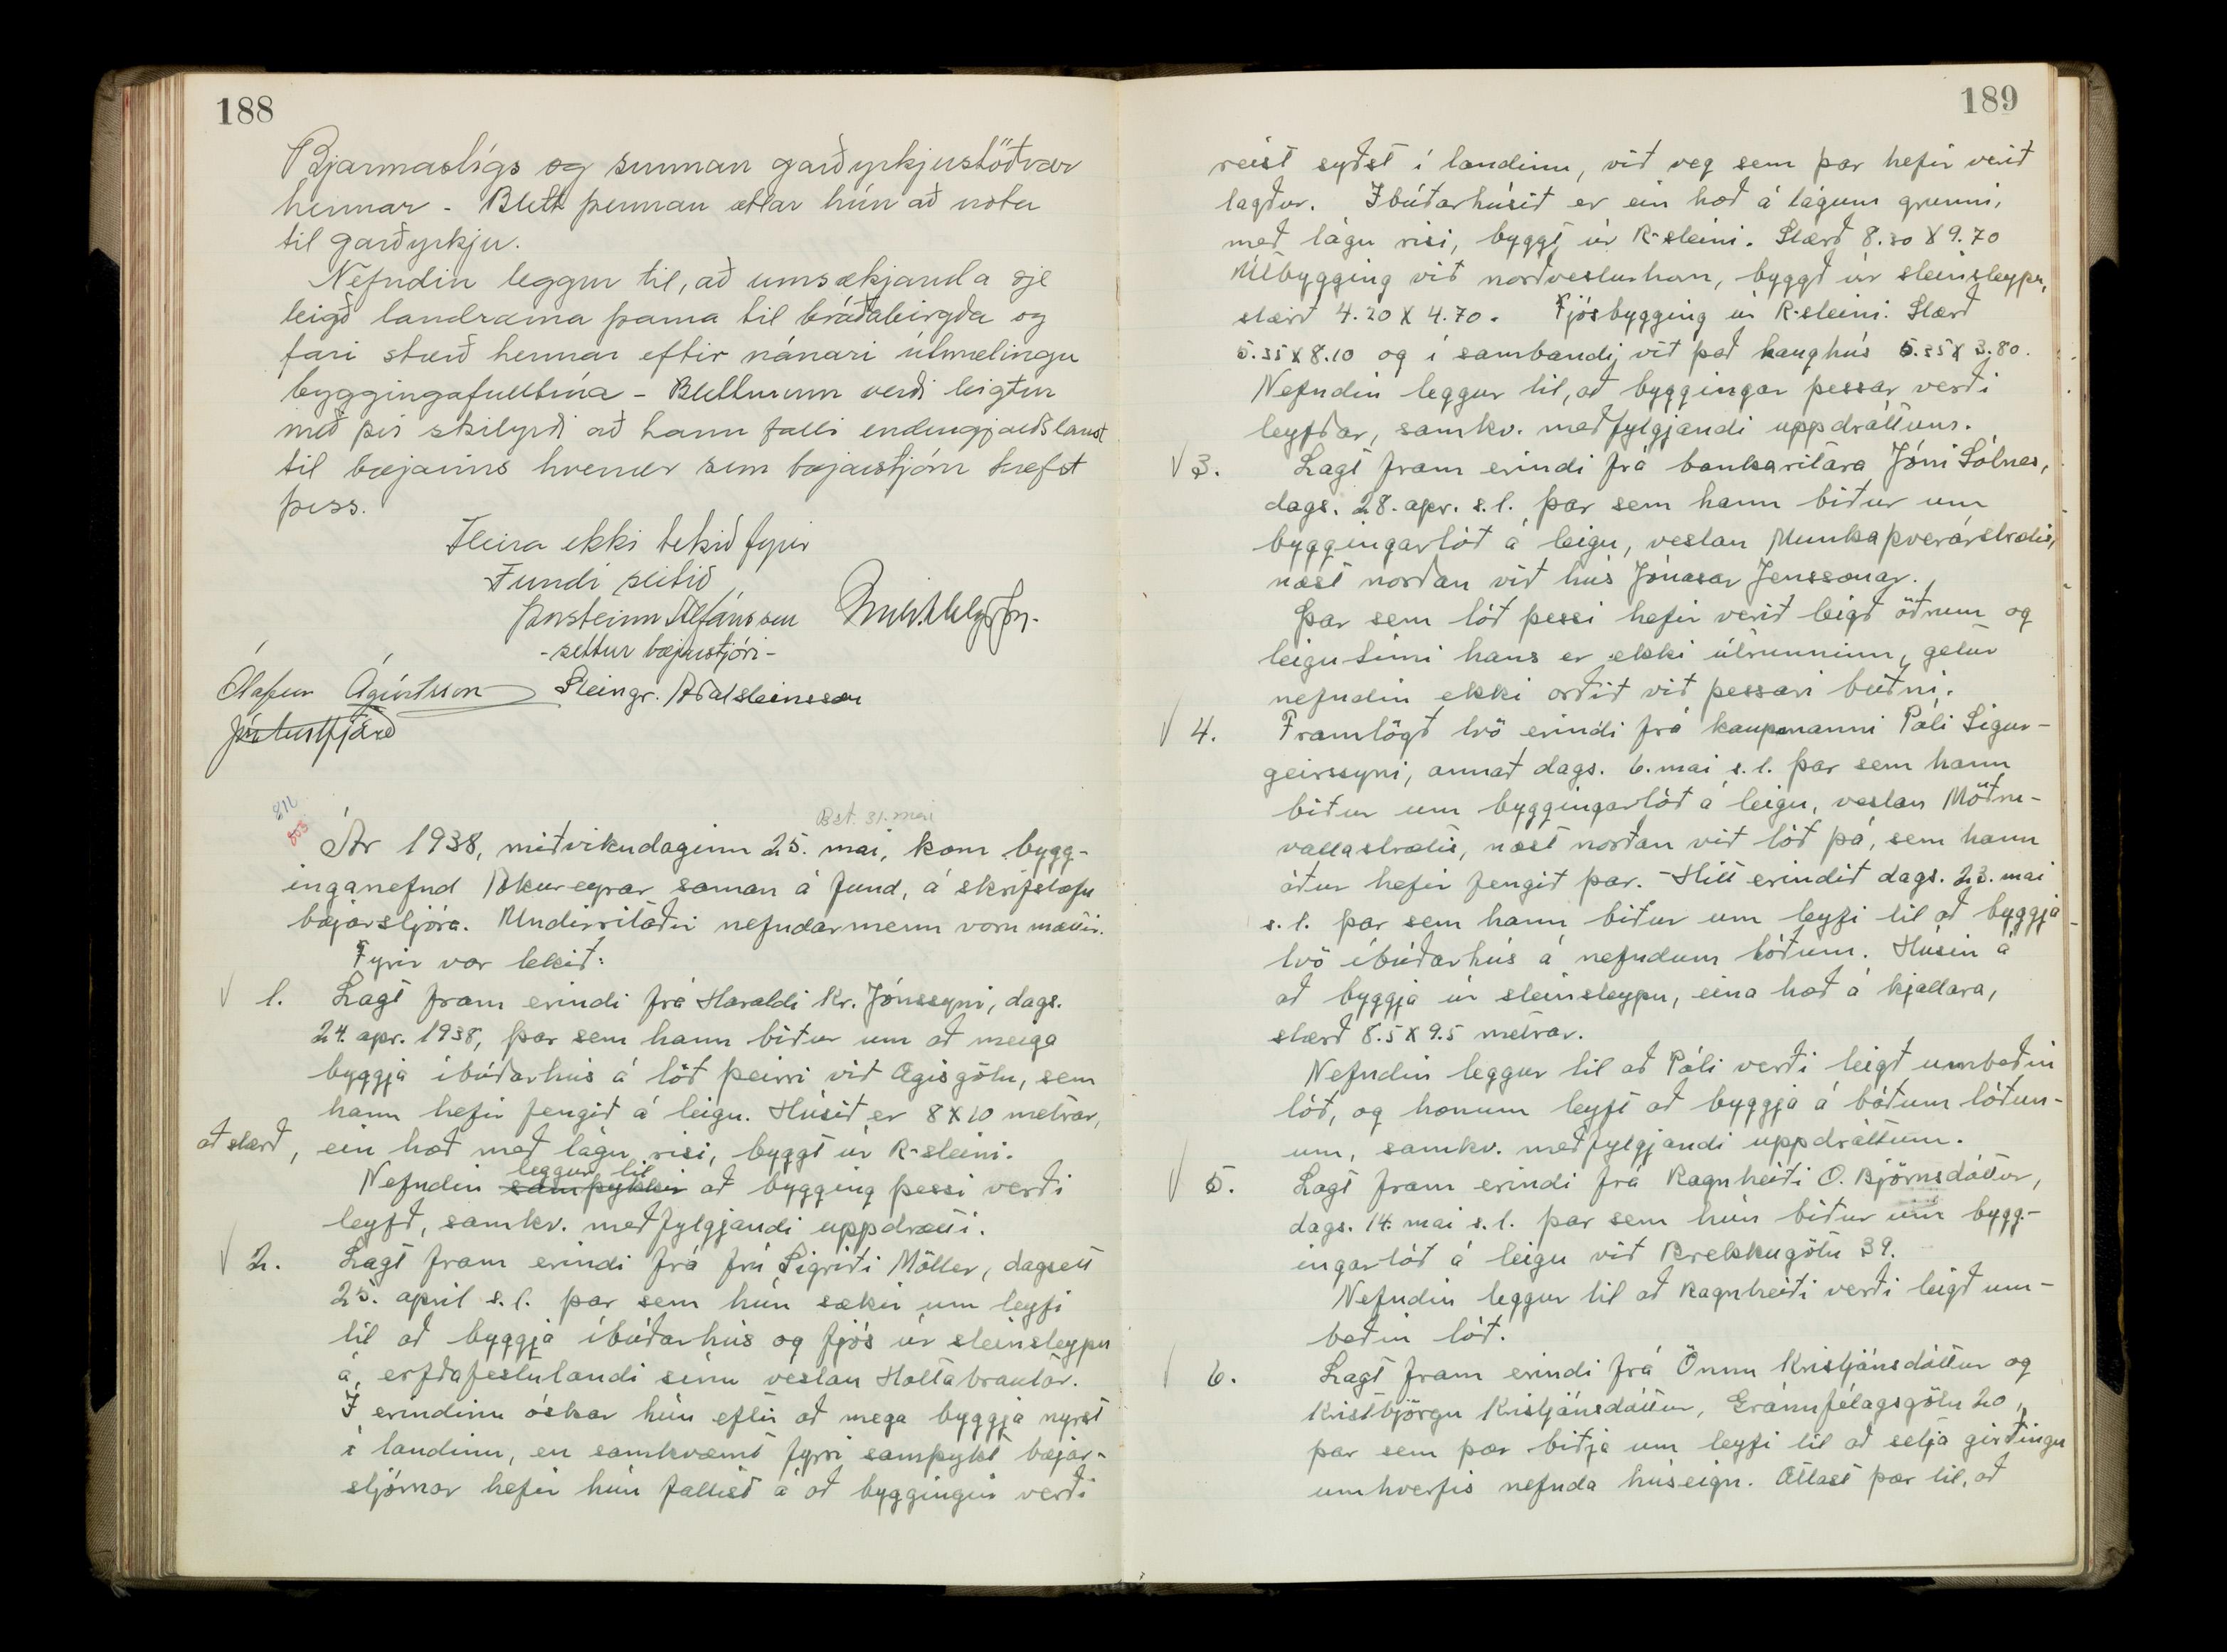 188
Bjarmastígs og sunnan garðyrkjustöðvar
hennar - Blett þennan ætlar hún að nota
til garðyrkju.
Nefndin leggur til, að umsækjanda sje
leigð landræma þama til bráðabirgða og
fari stærð hennar eftir nánari útmælingu
byggingafulltrúa - Bletturinn verði leigður
með því skilyrði að hann falli endurgjaldslaust
til bæjarins hvenær sem bæjarstjórn krefst
þess.
Fleira ekki tekið fyrir
Fundi slitið
Þorsteinn Stefánsson
- settur bæjarstjóri -
Ólafur Ágústsson Steingr. Aðalsteinsson
Bst. 31. mai
Ár 1938, miðvikudaginn 25. mai, kom bygg-
inganefnd Akureyrar saman á fund, á skrifstofu
bæjarstjóra. Undirritaðir nefndarmenn voru mættir.
Fyrir var tekið:
1. Lagt fram erindi frá Haraldi Kr. Jónssyni, dags.
24. apr. 1938, þar sem hann biður um að meiga
byggja íbúðarhús á lóð þeirri við Ægisgötu, sem
hann hefir fengið á leigu. Húsið er 8 x 10 metrar,
að stærð, ein hæð með lágu risi, byggt úr R-steini.
leggur til
Nefndin samþykkir að bygging þessi verði
leyfð, samkv. meðfylgjandi uppdrætti.
2. Lagt fram erindi frá frú Sigríði Möller, dagsett
25. apríl s.l. þar sem hún sækir um leyfi
til að byggja íbúðarhús og fjós úr steinsteypu
á erfðafestulandi sínu vestan Holtabrautar.
Í erindinu óskar hún eftir að mega byggja nyrst
í landinu, en samkvæmt fyrri samþykt bæjar-
stjórnar hefir hún fallist á að byggingin verði
189
reist syðst í landinu, við veg sem þar hefir verið
lagður. Íbúðarhúsið er ein hæð á lágum grunni,
með lágu risi, byggt úr R-steini. Stærð 8.30 x 9.70
Útbygging við norðvesturhorn, byggð úr steinsteypu,
stærð 4.20 x 4.70. Fjósbygging úr R-steini. Stærð
5.35 x 8.10 og í sambandi við það haughús 5.35 x 3.80.
Nefndin leggur til, að byggingar þessar verði
leyfðar, samkv. meðfylgjandi uppdráttum.
3. Lagt fram erindi frá bankaritara Jóni Sólnes,
dags. 28. apr. s.l. þar sem hann biður um
byggingarlóð á leigu, vestan Munkaþverárstrætis,
næst norðan við hús Jónasar Jenssonar.
Þar sem lóð þessi hefir verið leigð öðrum og
leigutími hans er ekki útrunninn, getur
nefndin ekki orðið við þessari beiðni.
4. Framlögð tvö erindi frá kaupmanni Páli Sigur-
geirssyni, annað dags. 6. mai s.l. þar sem hann
biður um byggingarlóð á leigu, vestan Möðru-
vallastrætis, næst norðan við lóð þá, sem hann
áður hefir fengið þar. - Hitt erindið dags. 23. mai
s.l. þar sem hann biður um leyfi til að byggja
tvö íbúðarhús á nefndum lóðum. Húsin á
að byggja úr steinsteypu, eina hæð á kjallara,
stærð 8.5 x 9.5 metrar.
Nefndin leggur til að Páli verði leigð umbeðin
lóð, og honum leyft að byggja á báðum lóðun-
um, samkv. meðfylgjandi uppdráttum.
5. Lagt fram erindi frá Ragnheiði O. Björnsdóttur,
dags. 14. mai s.l. þar sem hún biður um bygg-
ingarlóð á leigu við Brekkugötu 39.
Nefndin leggur til að Ragnheiði verði leigð um-
beðin lóð.
6. Lagt fram erindi frá Önnu Kristjánsdóttur og
Kristbjörgu Kristjánsdóttur, Gránufélagsgötu 20,
þar sem þær biðja um leyfi til að setja girðingu
umhverfis nefnda húseign. Ætlast þær til, að